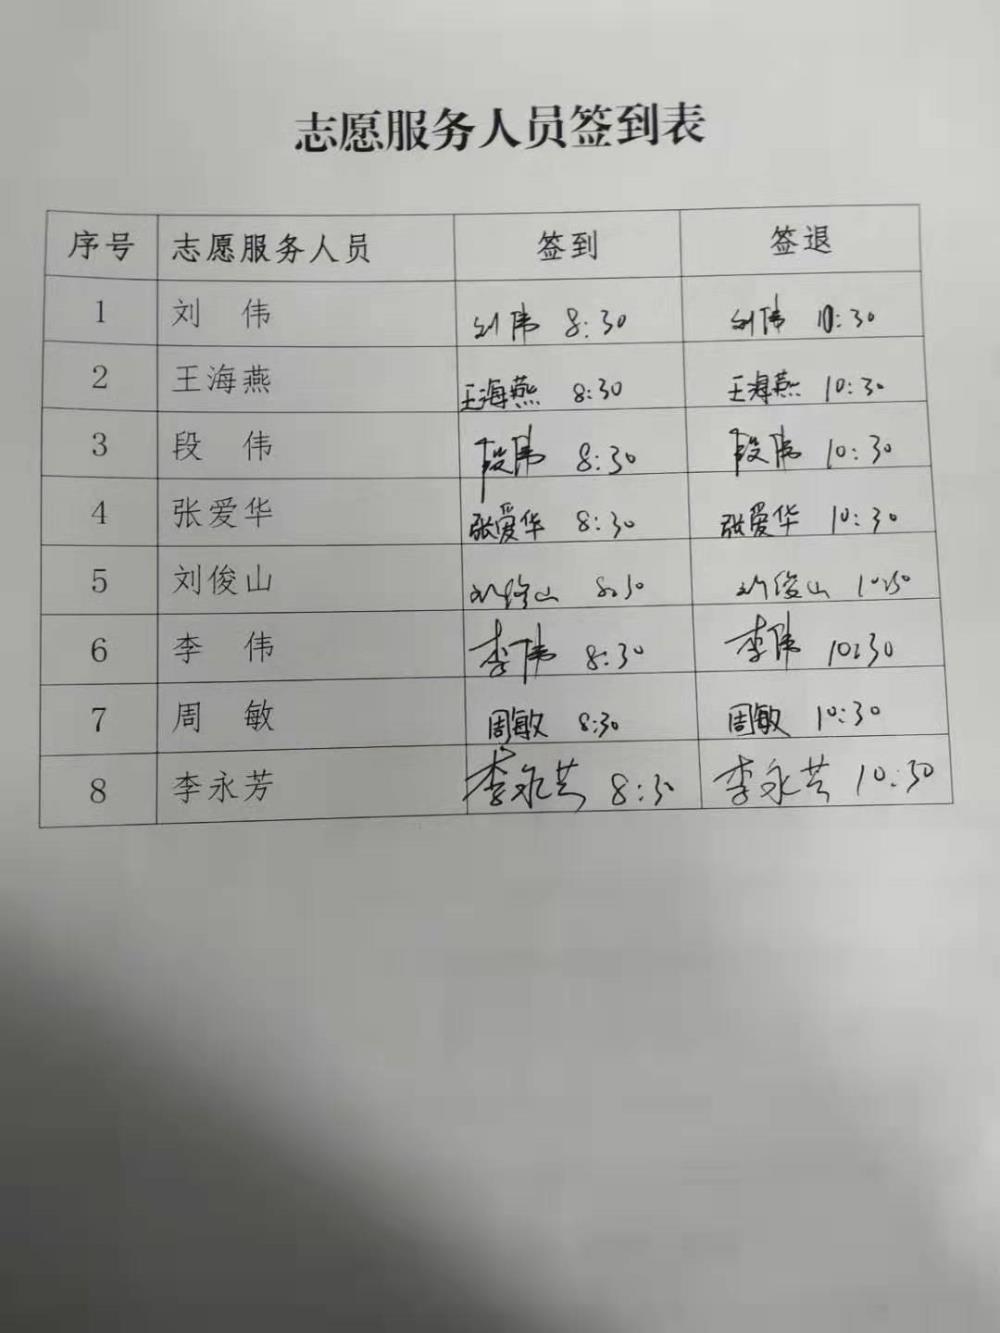 志愿服务人员签到表
序号 志愿服务人员 签到 签退
1 刘 伟 刘伟 8:30 刘伟 10:30
2 王海燕 王海燕 8:30 王海燕 10:30
3 段 伟 段伟 8:30 段伟 10:30
4 张爱华 张爱华 8:30 张爱华 10:30
5 刘俊山 刘俊山 8:30 刘俊山 10:30
6 李 伟 李伟 8:30 李伟 10:30
7 周 敏 周敏 8:30 周敏 10:30
8 李永芳 李永芳 8:30 李永芳 10:30